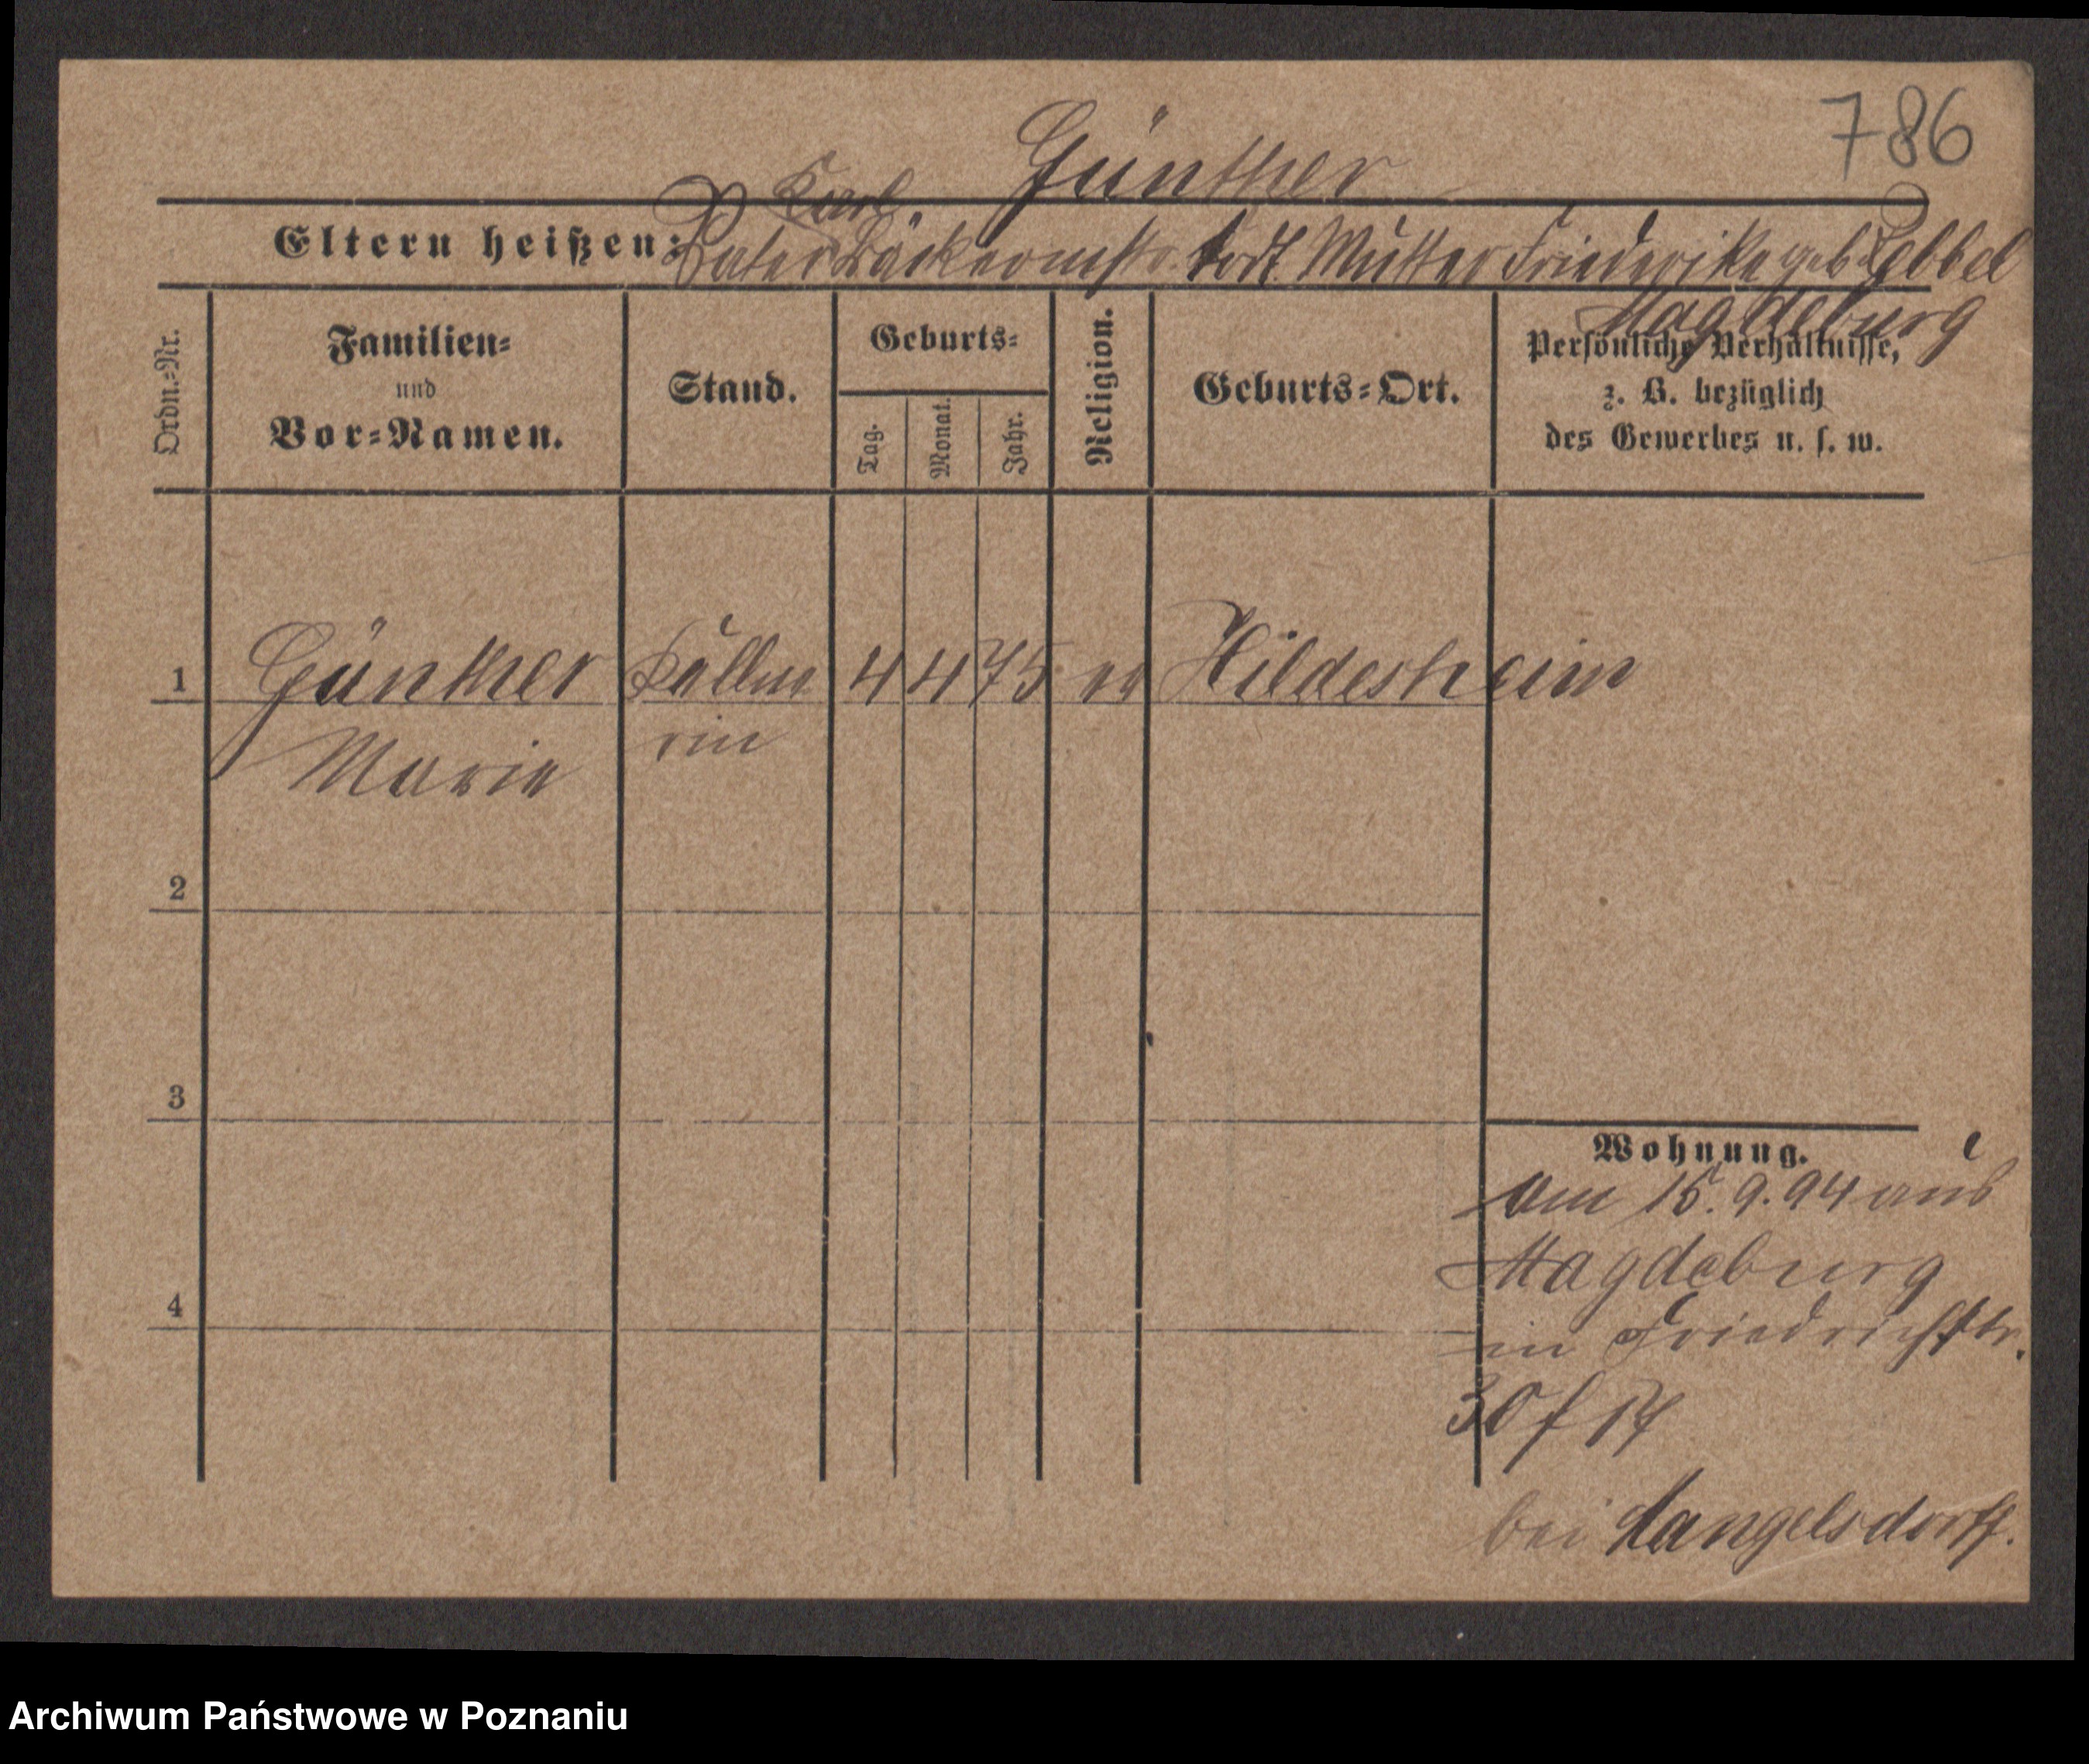 786
Günther
Karl
Eltern heißen: Vater Bäckermstr. todt. Mutter Friederike geb.
Magdeburg
Ordn.-Nr.
Familien-
und
Vor-Namen.
Stand.
Geburts-
Tag.
Monat.
Jahr.
Religion.
Geburts-Ort.
Persönliche Verhältnisse,
z. B. bezüglich
des Gewerbes u. s. w.
1 Günther Kellne 4 4 75 ev Hildesheim
Marie rin
2
3
4
Wohnung.
Am 15. 9. 94 aus
Magdeburg
in Friedrichstr.
30
bei Langelsdorff.
Archiwum Państwowe w Poznaniu